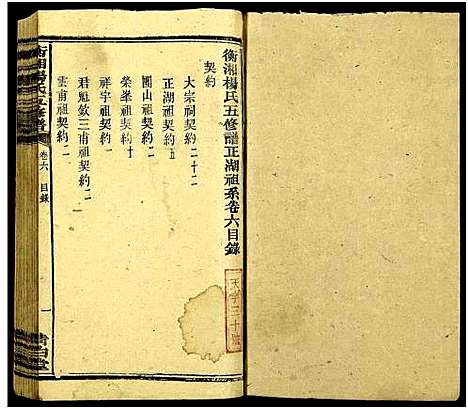 衡湘楊氏五修譜正湖祖系卷六目錄
契約
大宗祠契約二十二
正湖祖契約五
團山祖契約二
榮峯祖契約十
祥宇祖契約一
君魁欽三甫祖契約二
雲甫祖契約二
天字三十號
衡湘楊氏五修譜
卷六 目錄
一
清白堂